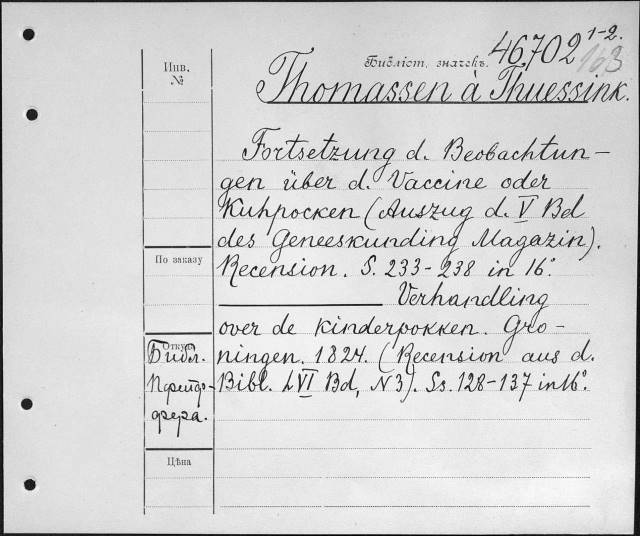 Инв.
№
Библіот. значекъ. 46,702 1-2.
163
Thomassen à Thuessink.
Fortsetzung d. Beobachtun-
gen über d. Vaccine oder
Kuhpocken (Auszug d. V Bd
des Geneeskunding Magazin).
По заказу
Recension. S. 233-238 in 16°.
Verhandling
over de kinderpokken. Gro-
Откуда
Библ.
ningen. 1824. (Recension aus d.
Пфейф-
фера.
Bibl. LVI Bd, N3). Ss. 128-137 in 16°.
Цѣна